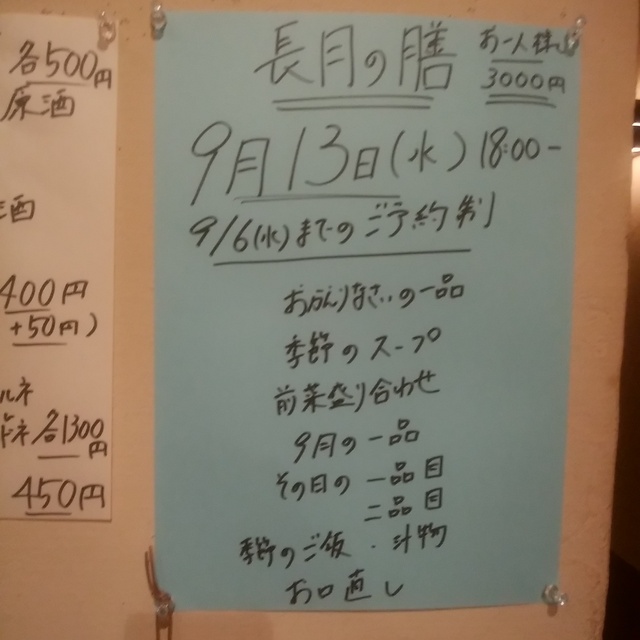 各500円
原酒
酒
400円
+50円)
ルネ
ドネ 各1300円
450円
長月の膳
お一人様
3000円
9月13日(水) 18:00-
9/6(水)までのご予約制
おかえりなさいの一品
季節のスープ
前菜盛り合わせ
9月の一品
その日の一品目
二品目
季節のご飯・汁物
お口直し